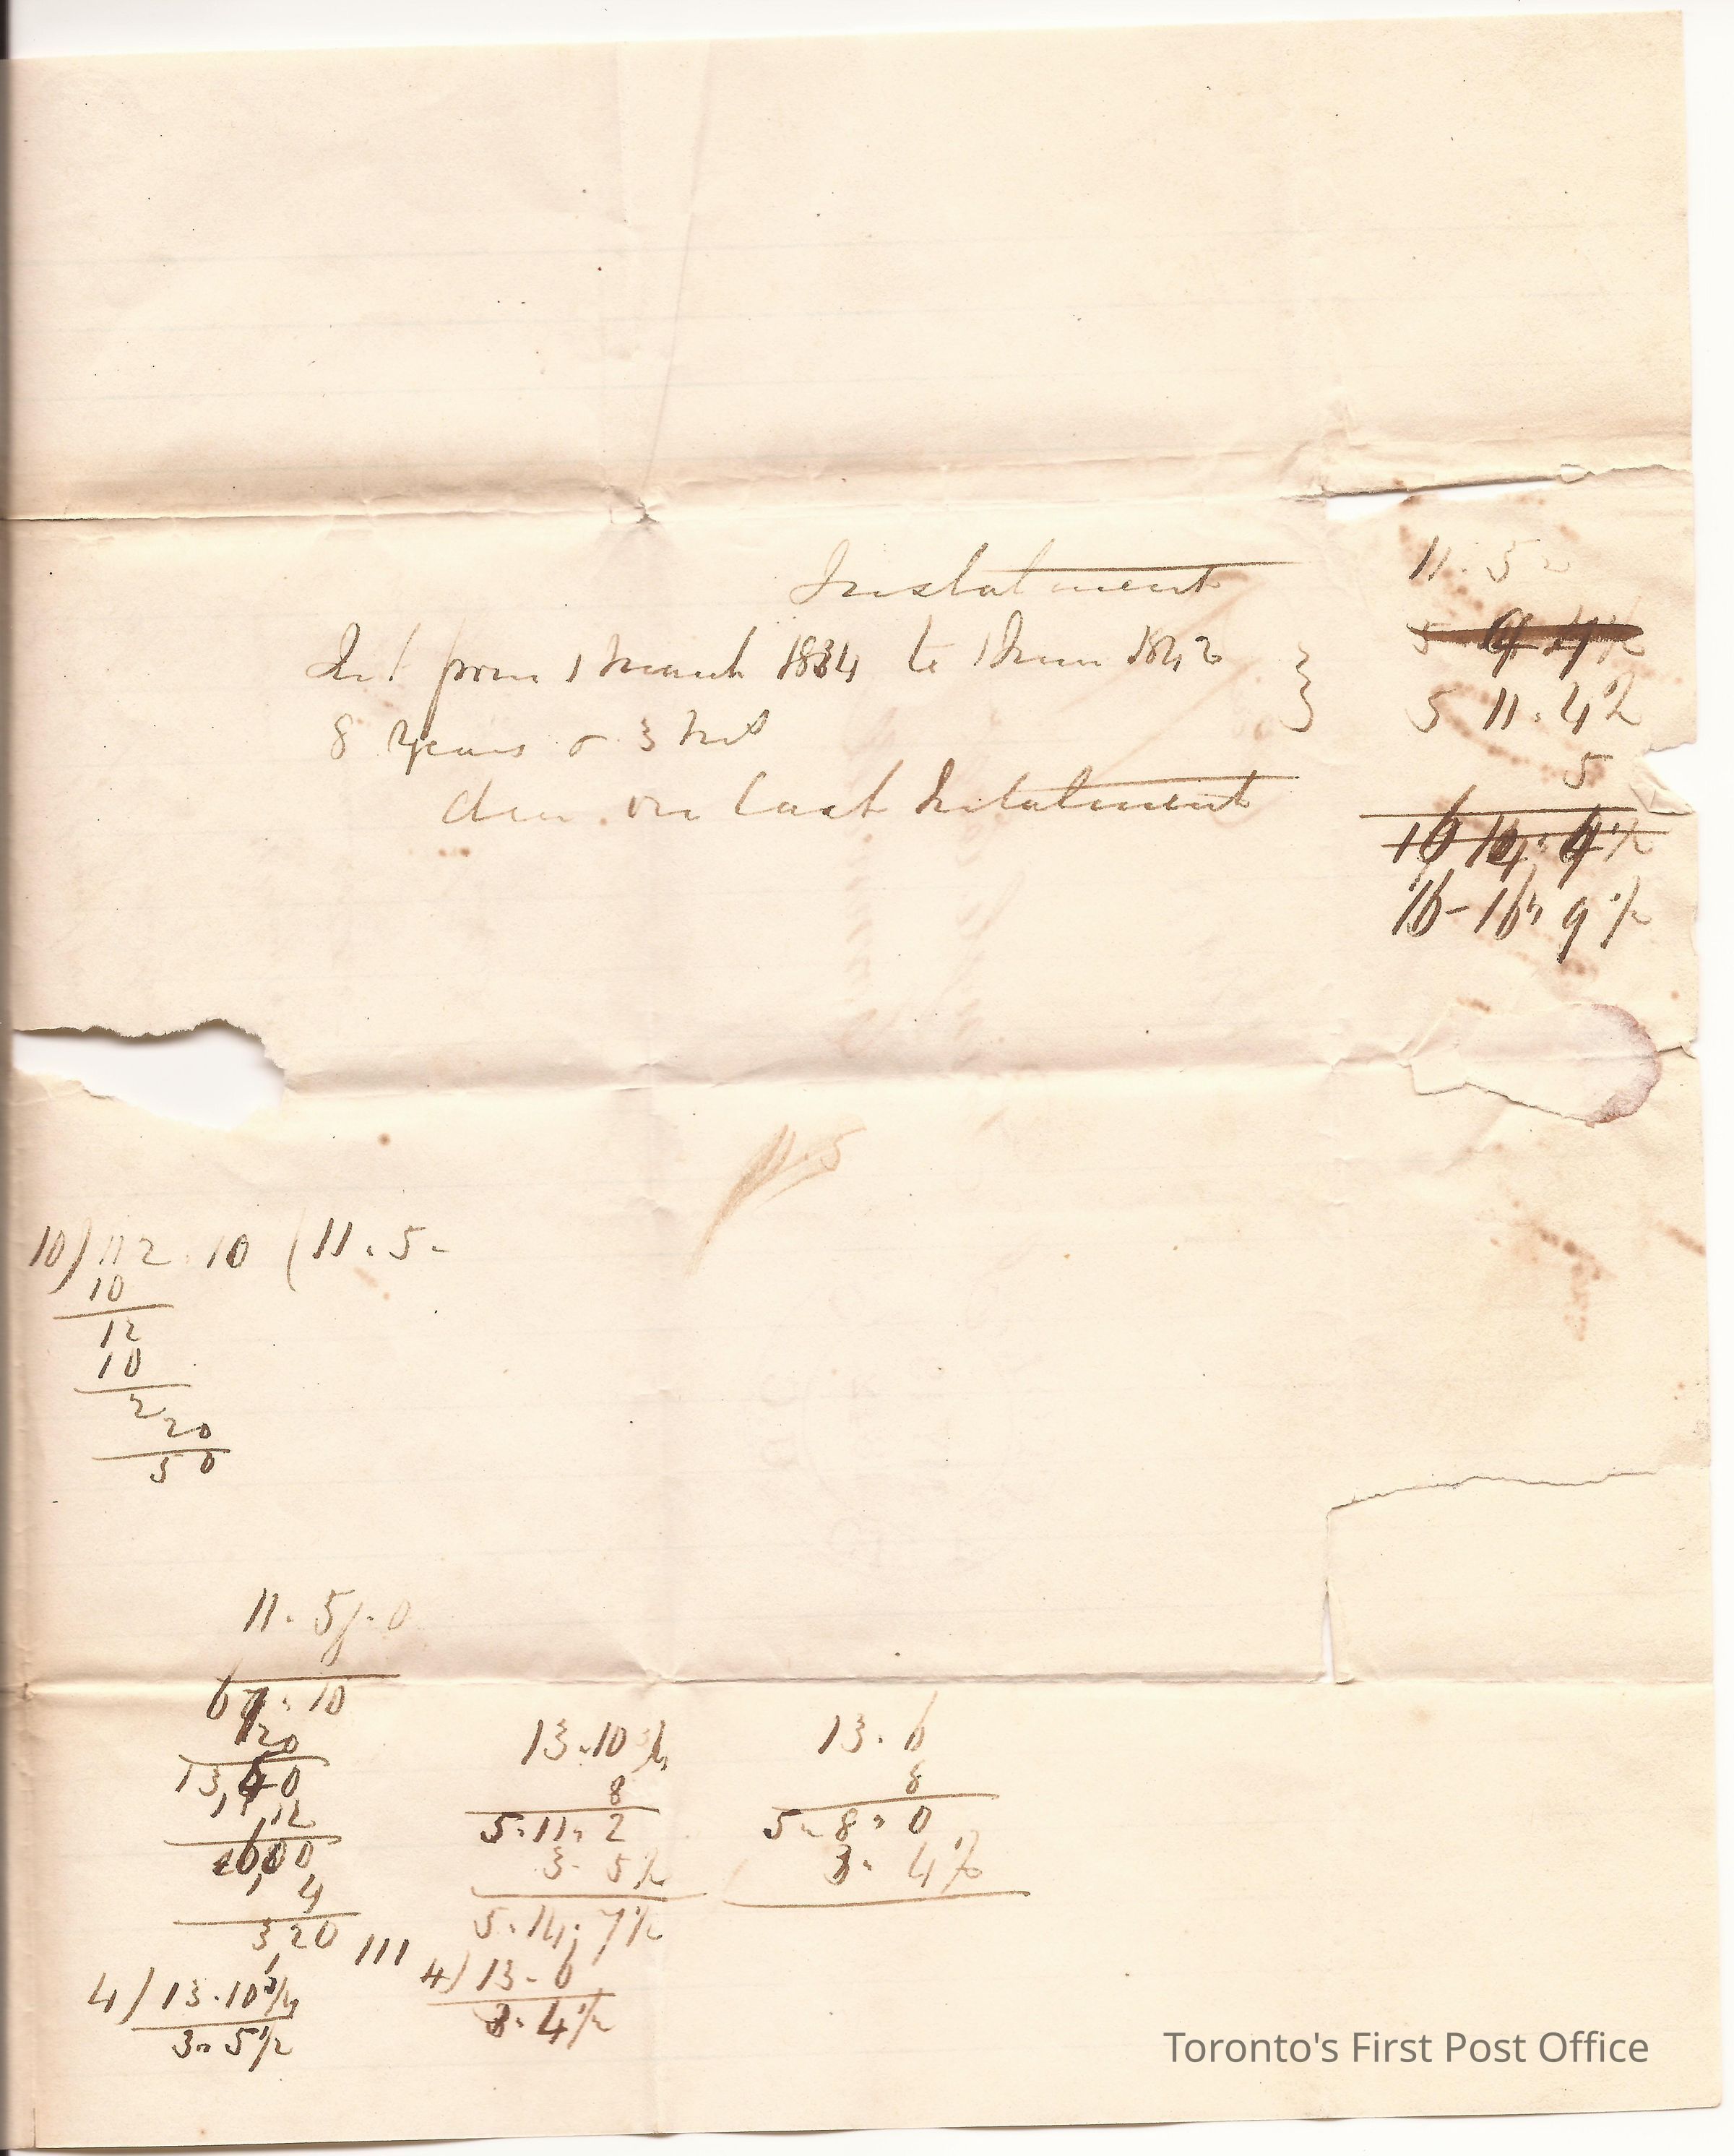 Instalment 11 . 5 "
Int from 1 March 1834 to 1 June 1842 }
8 Years & 3 Mos 5 11 . 4½
5
due on last Instalment
16 14 . 4½
16 - 16 " 9½
11.5
10 ) 112 . 10 ( 11 . 5 -
10
12
10
2
20
50
11 . 5 . 0
6
67 . 10
20
13,50
12
6,00
4
13 . 10
8
5 . 11 " 2
3 . 5½
5 . 14 . 7½
13 . 6
8
5 " 8 " 0
3 . 4½
4 ) 13 . 10¾
3 " 5½
4 ) 13 - 6
3 . 4½
Toronto's First Post Office